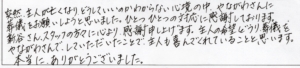 突然、主人が亡くなりどうしていいのかわからない心境の中、やながわさんに
葬儀をお願いしようと思いました。ひとつひとつの対応に感謝しております。
新谷さん、スタッフの方々に心より感謝申し上げます。主人の希望どうり葬儀を
やながわさんで、していただいたことで主人も喜んでくれていることと思います。
本当にありがとうございました。